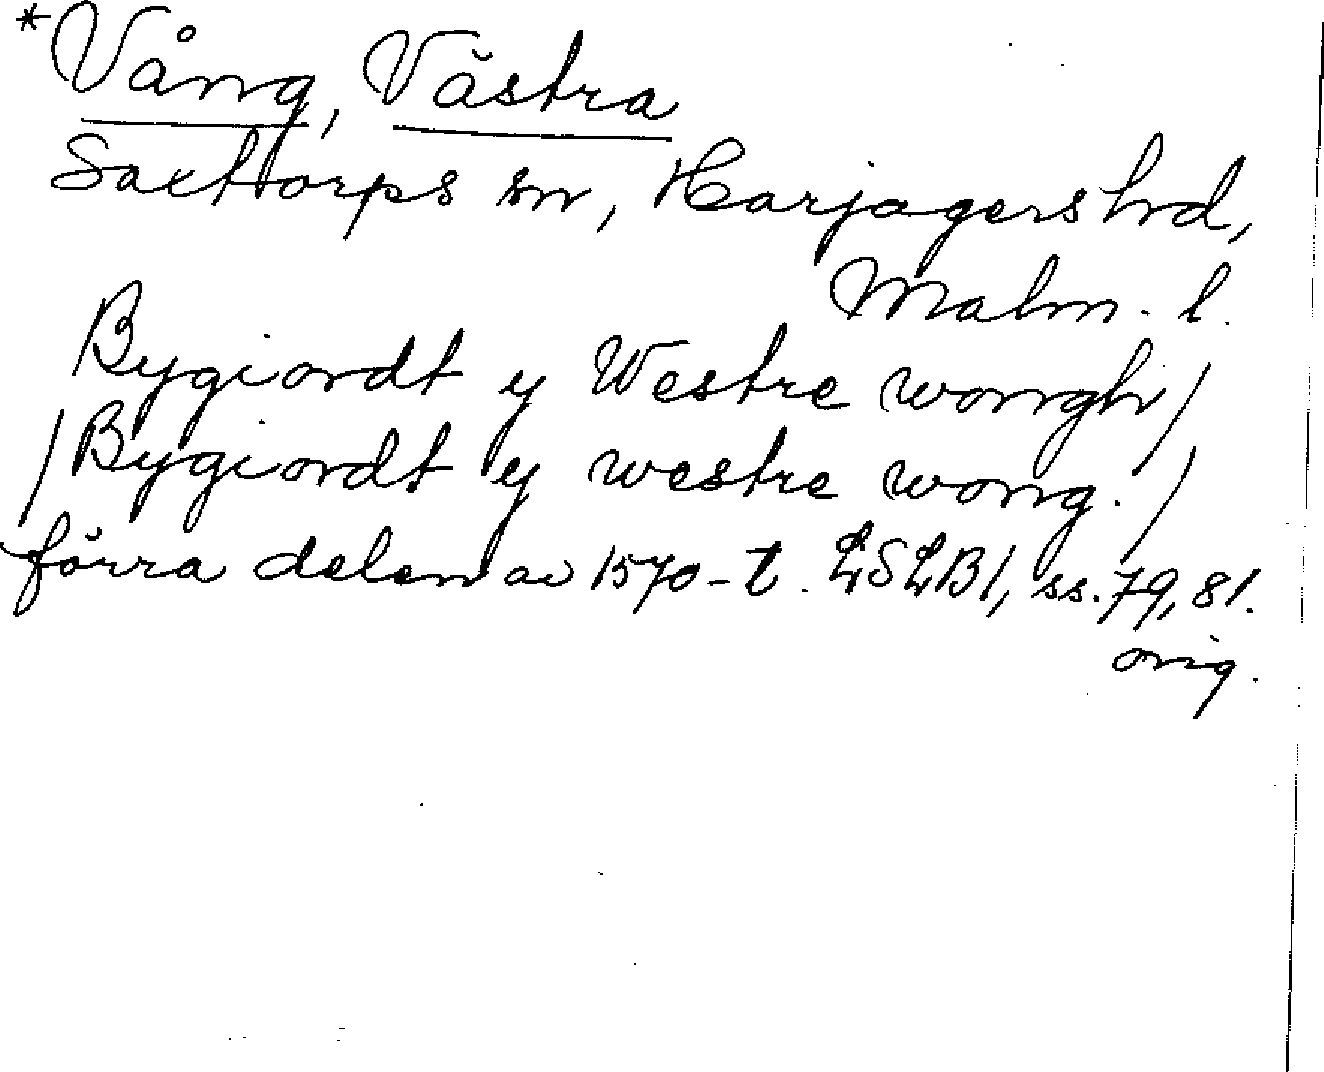 *Vång, Västra
Saxtorps sn, Harjagers hd,
Malm. l.
Bygiordt y Westre wongh/
/Bygiordt y westre wong./
förra delen av 1570-t. LSLB1, ss. 79, 81.
orig.